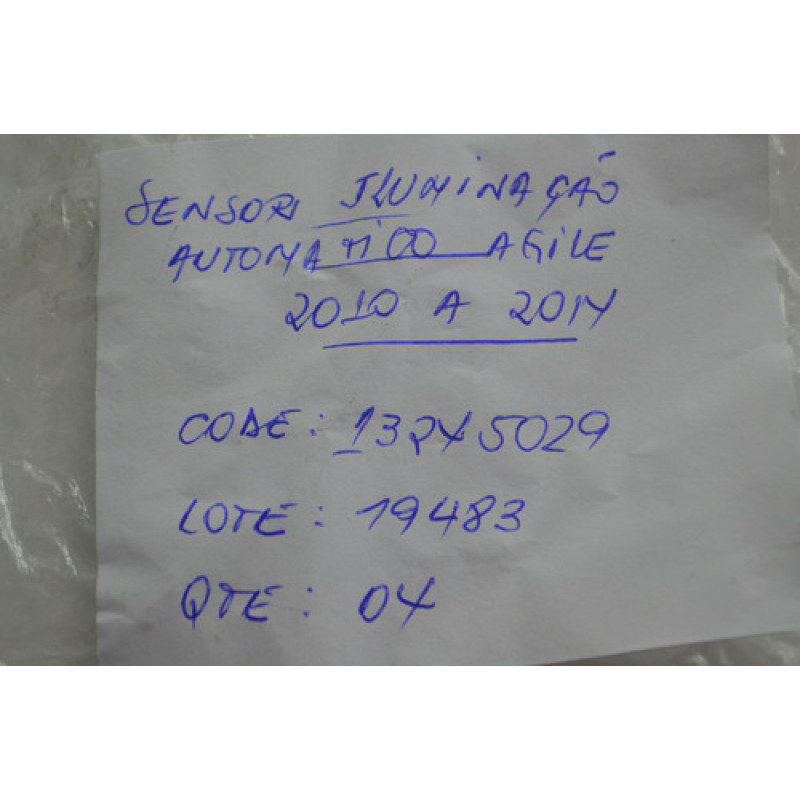 SENSOR ILUMINAÇÃO
AUTOMATICO AGILE
2010 A 2014
CODE: 13245029
LOTE: 19483
QTE: 04